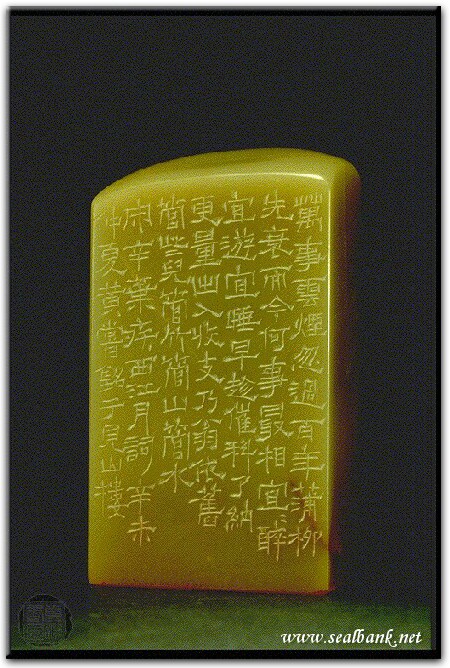 萬事雲煙忽過百年蒲柳
先衰而今何事最相宜〻醉
宜遊宜睡早趁催科了納
更量出入收支乃翁依舊
管些兒管竹管山管水
宋辛棄疾西江月詞辛未
仲夏黃銘于見山樓
www.sealbank.net